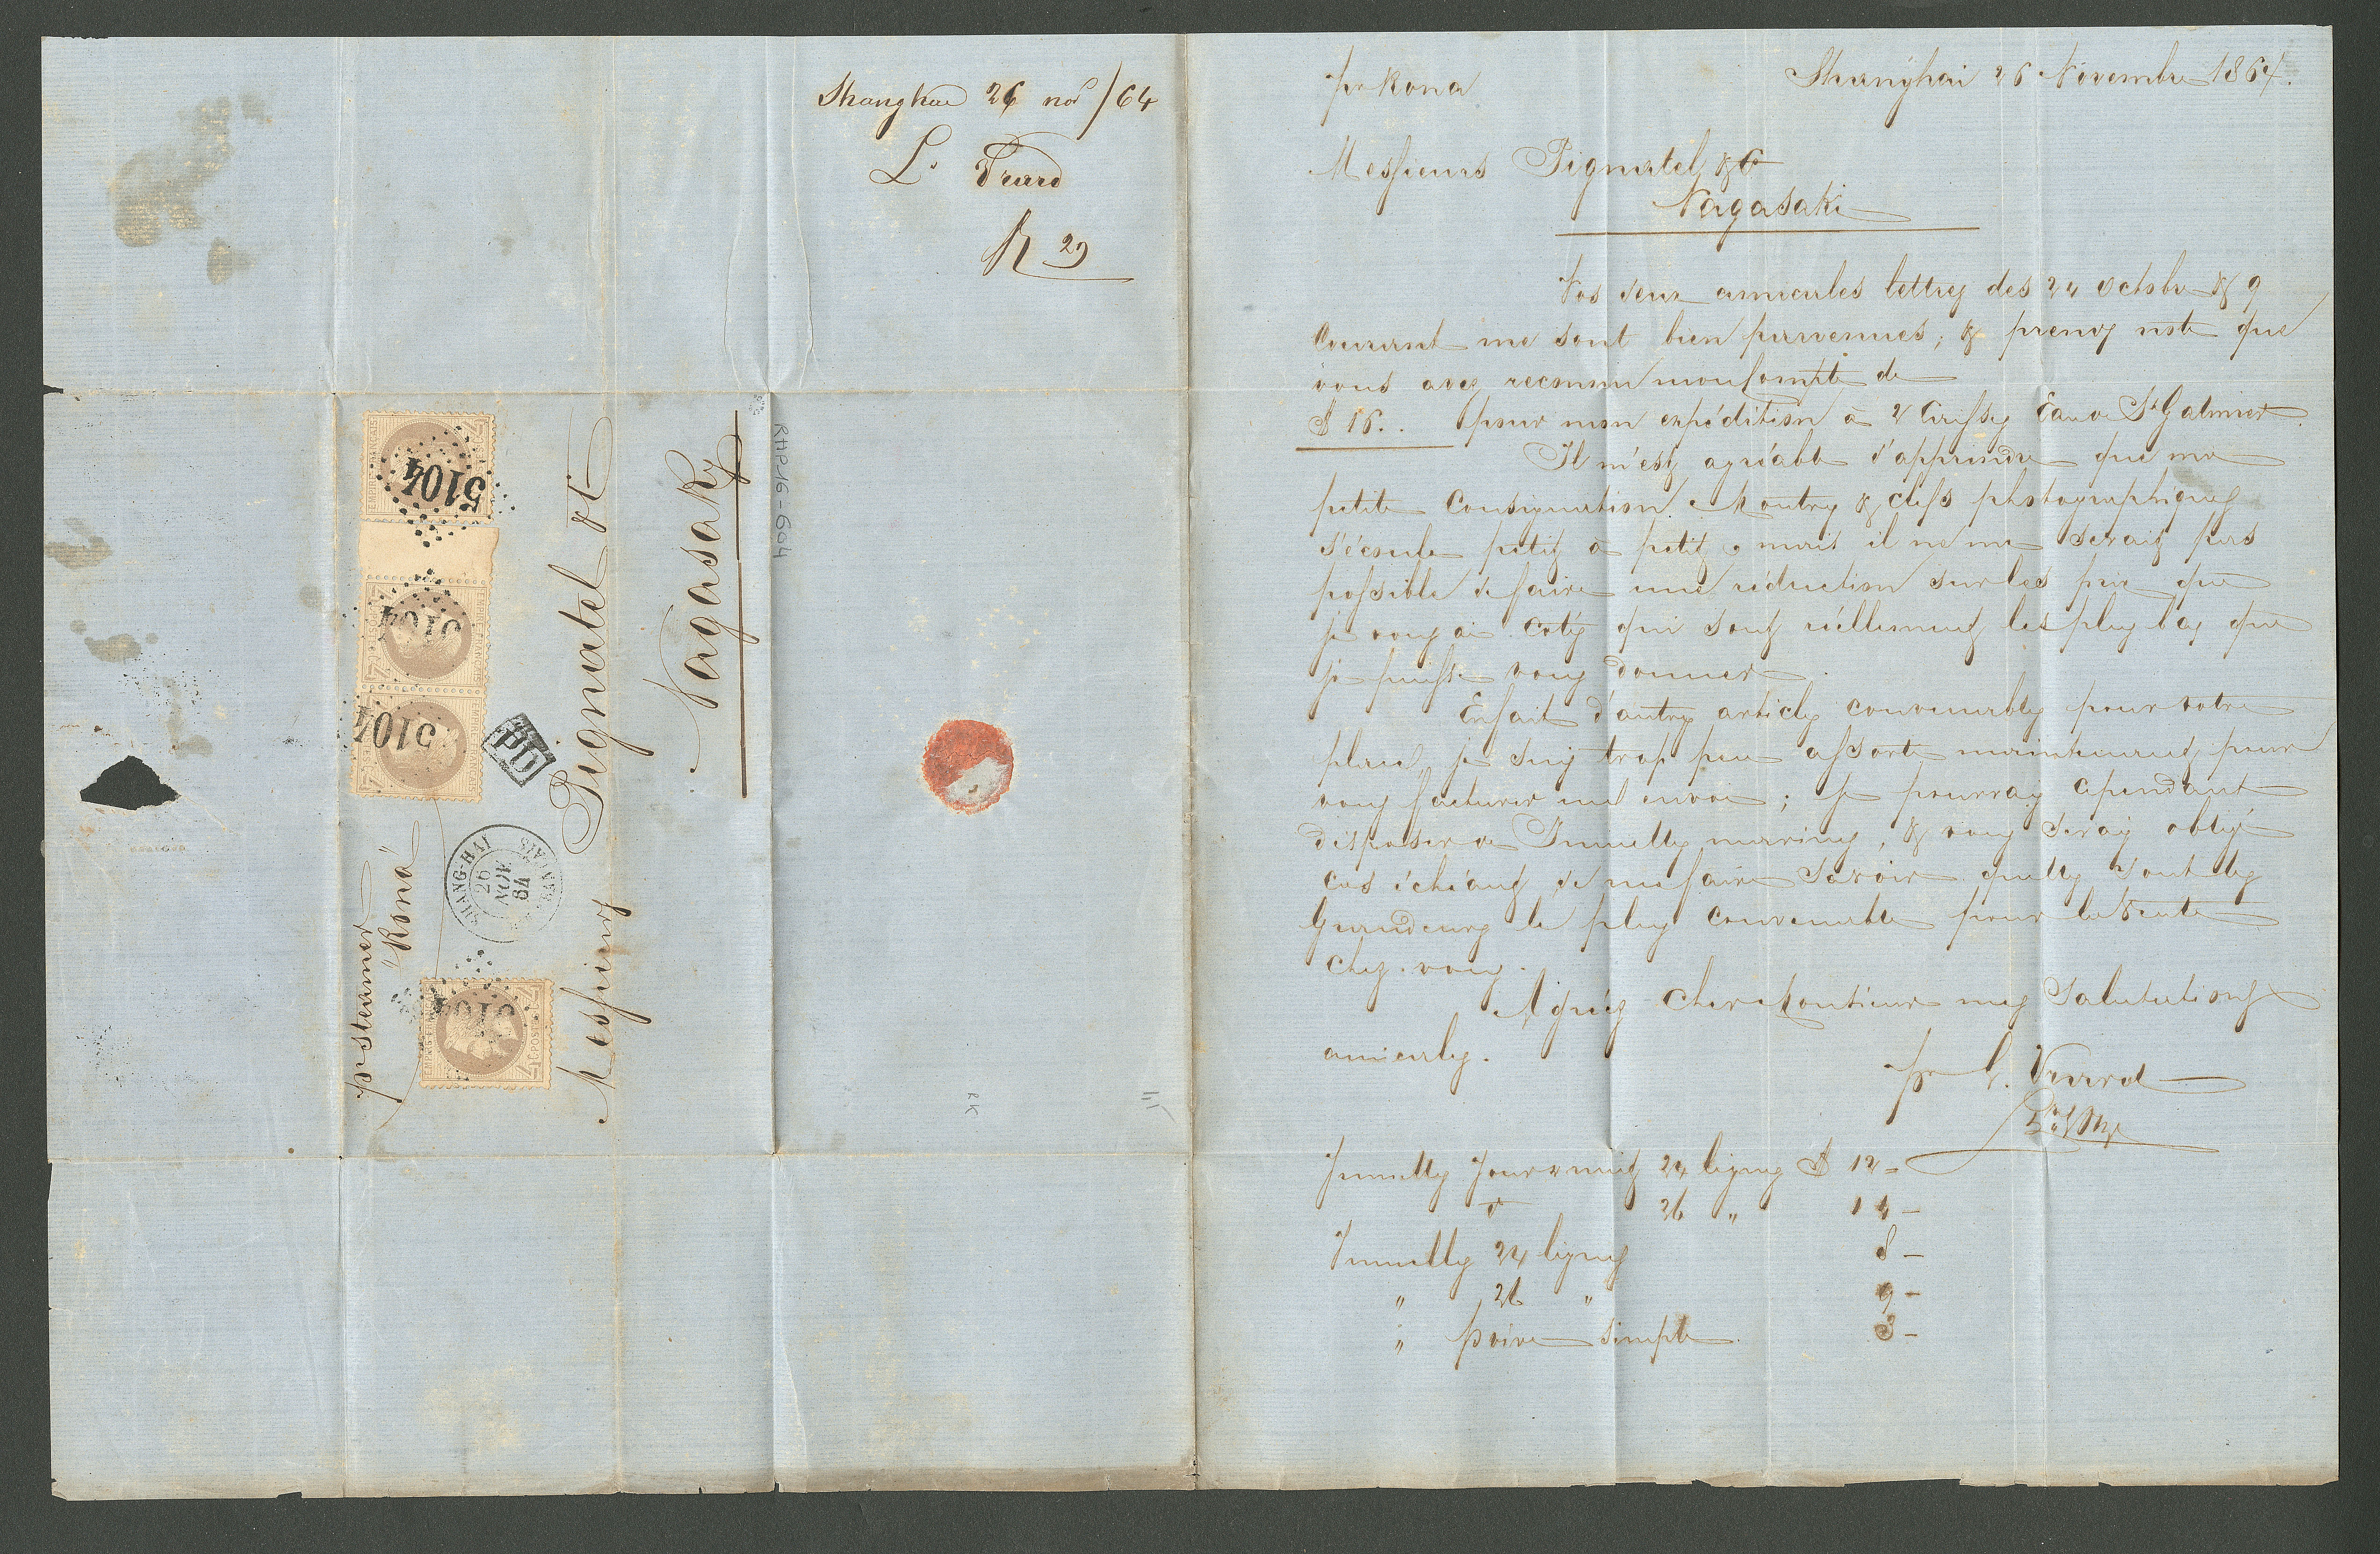 Shanghae 26 nov /64
L. Vrard
R 29
pr Rona
Shanghai 26 Novembre 1864.
Messieurs Pignatel & Co
Nagasaki
Vos deux amicales lettres des 24 Octobre & 9
Courant me sont bien parvenues; & prends note que
vous avez reconnu mon Compte de
$ 16.. pour mon expédition de 2 Caisses Eau de St Galmier.
Il m'est agréable d'apprendre que ma
petite Consignation Montres & clefs photographiques
s'écoule petit à petit, mais il ne me serait pas
possible de faire une réduction sur les prix que
je vous ai cotés qui sont réellement les plus bas que
je puisse vous donner.
En fait d'autres articles convenables pour votre
place, je suis trop peu assorti maintenant pour
vous facturer un envoi; je pourrais cependant
disposer de Jumelles marines, & vous serais obligé
cas échéant de me faire savoir quelles sont les
Grandeurs le plus convenable pour la Vente
chez vous.
Agréez Cher Monsieur mes Salutations
amicales.
pr L. Vrard
Jumelles Jour & nuit 24 lignes $ 12 =
do 26 " 14 -
Jumelles 24 lignes 8 -
" 26 " 9 -
" poire simple 3 -
pr steamer
"Rona"
Messieurs
Pignatel & Co
Nagasaky
RHP16-604
RK
5104
5104
5104
5104
PD
SHANG-HAI
26
NOV
64
EMPIRE FRANÇAIS
EMPIRE FRANÇAIS
EMPIRE FRANÇAIS
EMPIRE FRANÇAIS